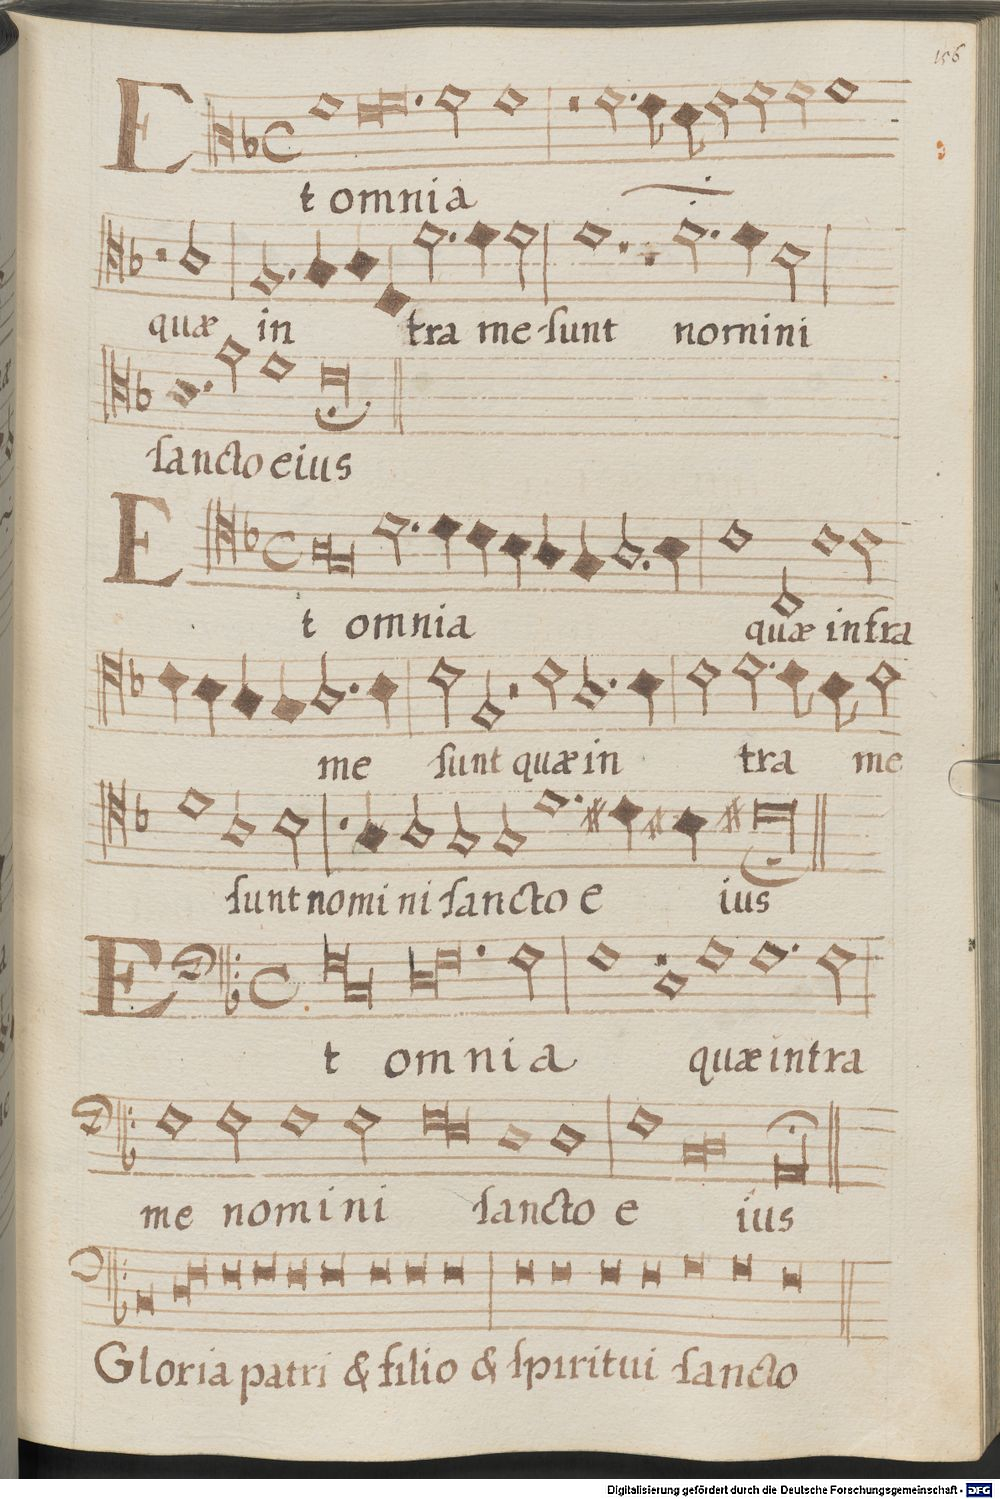 156
Et omnia
quæ in tra me sunt nomini
sancto eius
Et omnia quæ intra
me sunt quæ in tra me
sunt nomini sancto e ius
Et omnia quæ intra
me nomini sancto e ius
Gloria patri & filio & spiritui sancto
Digitalisierung gefördert durch die Deutsche Forschungsgemeinschaft - DFG